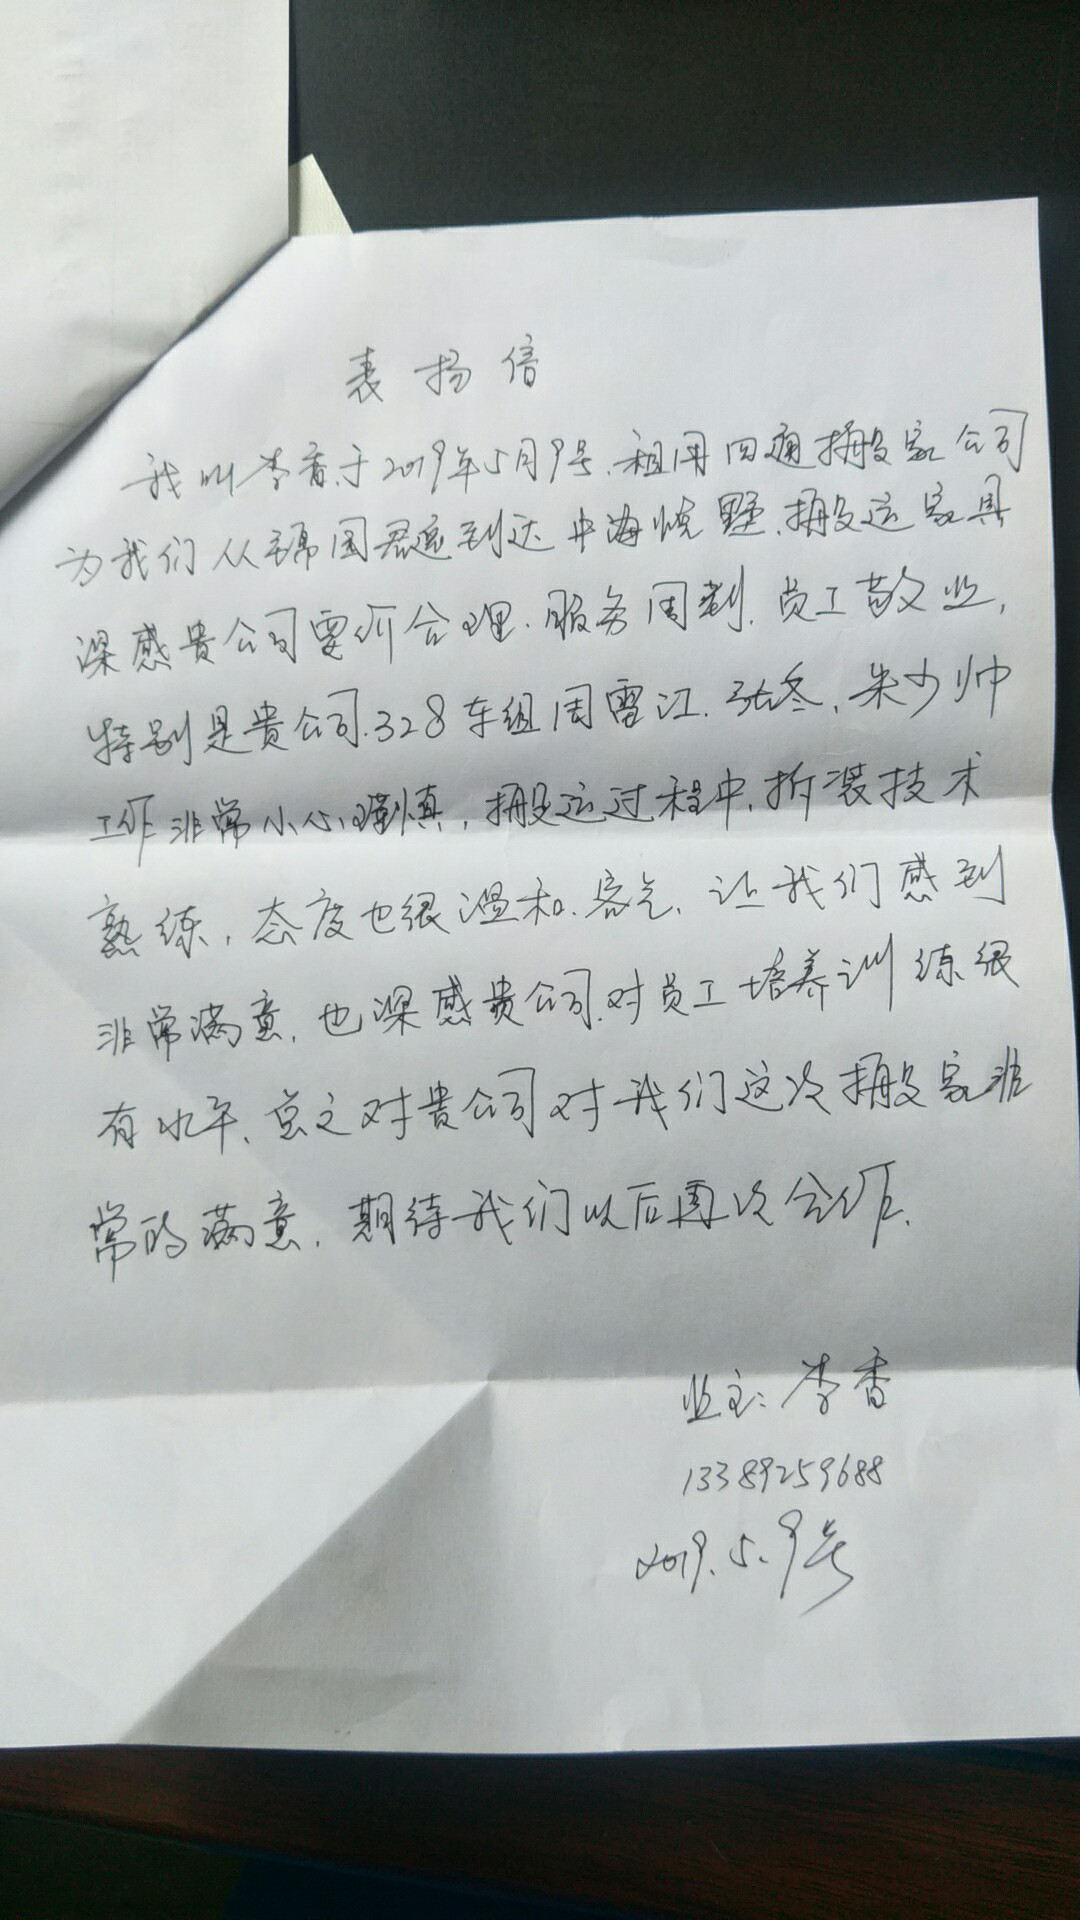 表扬信
我叫李香于2019年5月9号.租用四通搬家公司
为我们从锦园君逸到达中海悦墅.搬运家具
深感贵公司要价合理.服务周到.员工敬业,
特别是贵公司.328车组周雷江.张冬,朱少帅
工作非常小心谨慎,搬运过程中,拆装技术
熟练,态度也很温和.客气,让我们感到
非常满意,也深感贵公司.对员工培养训练很
有水平、总之对贵公司对我们这次搬家非
常的满意,期待我们以后再次合作.
业主:李香
13389259688
2019.5.9号